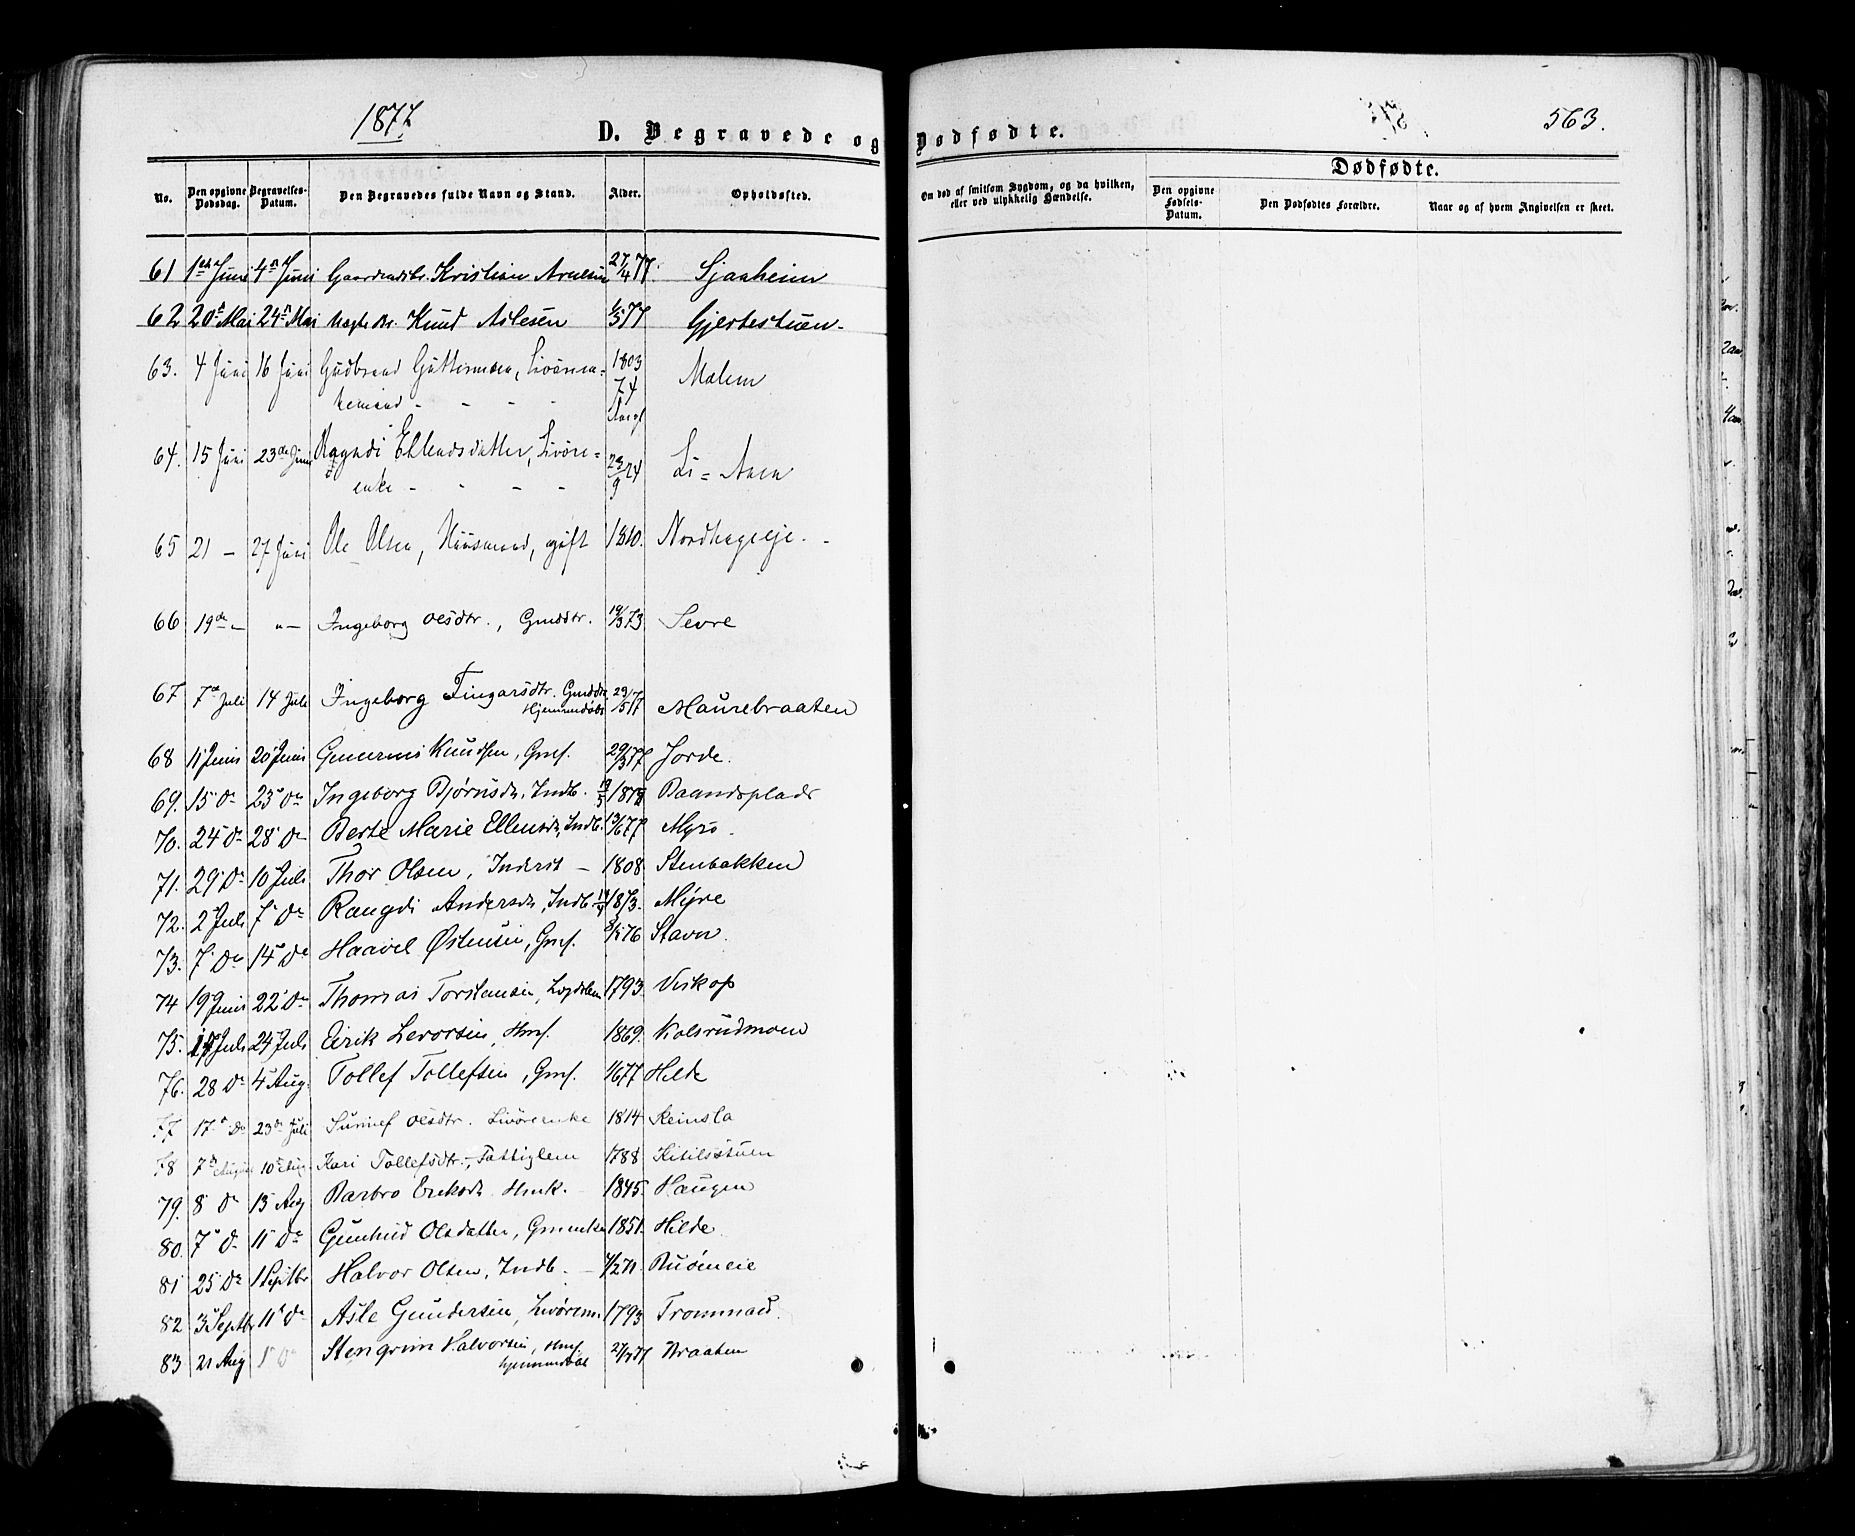 1877
563.
D. Begravede og Dødfødte.
No. | Den opgivne Dødsdag. | Begravelses-Datum. | Den Begravedes fulde Navn og Stand. | Alder. | Opholdssted. | Om død af smitsom Sygdom, og da hvilken, eller ved ulykkelig Hændelse. | Dødfødte. | Den opgivne Fødsels-Datum. | Den Dødfødtes Forældre. | Naar og af hvem Angivelsen er skeet.
61 1ste Juni 4n Juni Gaardmandsbr. Kristian Arnesen 27/4 77. Sjaaheim
62 20n Mai 24n Mai Knud Aslesen 77 Gjertestuen
63. 4 Juni 16 Juni Gudbrand Guttormsen, Livøremand 1803 74 Aar gl Molem
64. 15 Juni 23de Juni Ragndi Ellendsdatter, Livøreenke 23/9 24 Li-Aaen
65 21 – 27 Juni Ole Olsen, Huusmand, gift 1810. Nordhageeje
66 19de – "– Ingeborg Olsdtr., Gmdsdtr. 19/3 73 Sevre
67 7de Juli 14 Juli Ingeborg Fingarsdtr. Gmdsdtr Hjemmedøbt 29/5 77 Maurebraaten
68 11 Juni 20 Juni Knudsen, Gmf. 29/3 77 Jorde.
69. 15 Do 23 Do Ingeborg Bjørnsdr, Indb. Baandsplads
70. 24 Do 28 Do Berte Marie Ellensdr, Indb. 13/6 77 Myro.
71. 29 Do 10 Juli Thor Olsen, Inderst – 1808 Stenbakken
72. 2 Juli 7 Do Rangdi Andersdr, Indb. 1873. Myre
73. 7 Do 14 Do Haavel Østensen, Gmf. 76 Stavn.
74 19 Juni 22 Do Thomas Torstensen, Lægdslem 1793. Viskop
75. 17 Juli 24 Juli Eirik Levorsen, Hmf. 1869. Kolsrudmoen
76. 28 Do 4 Aug. Tollef Tollefsen, Gmf. 1/6 77 Hilde
77 17 Do 23de Juli Sünnef Olsdtr. Livøreenke 1814 Reinsla
78 7de August 10de Aug. Kari Tollefsdtr., Fattiglem 1788 Kitilsstuen
79. 8 Do 13 Aug Barbro Eriksdr. Hmk. 1845. Haugen
80. 7 Do 11 Do Gunhild Olsdatter, Gmenke 1851. Hilde.
81 25 Do 1 Septbr Halvor Olsen, Indb. – 4/2 71 Ruømeie
82 3 Septbr 11 Do Asle Gundersen, Livørem. 1793 Trommald.
83 21 Aug 1 Do Stengrim Halvorsen, Hmf. hjemmedøbt 27/7 77 Braaten